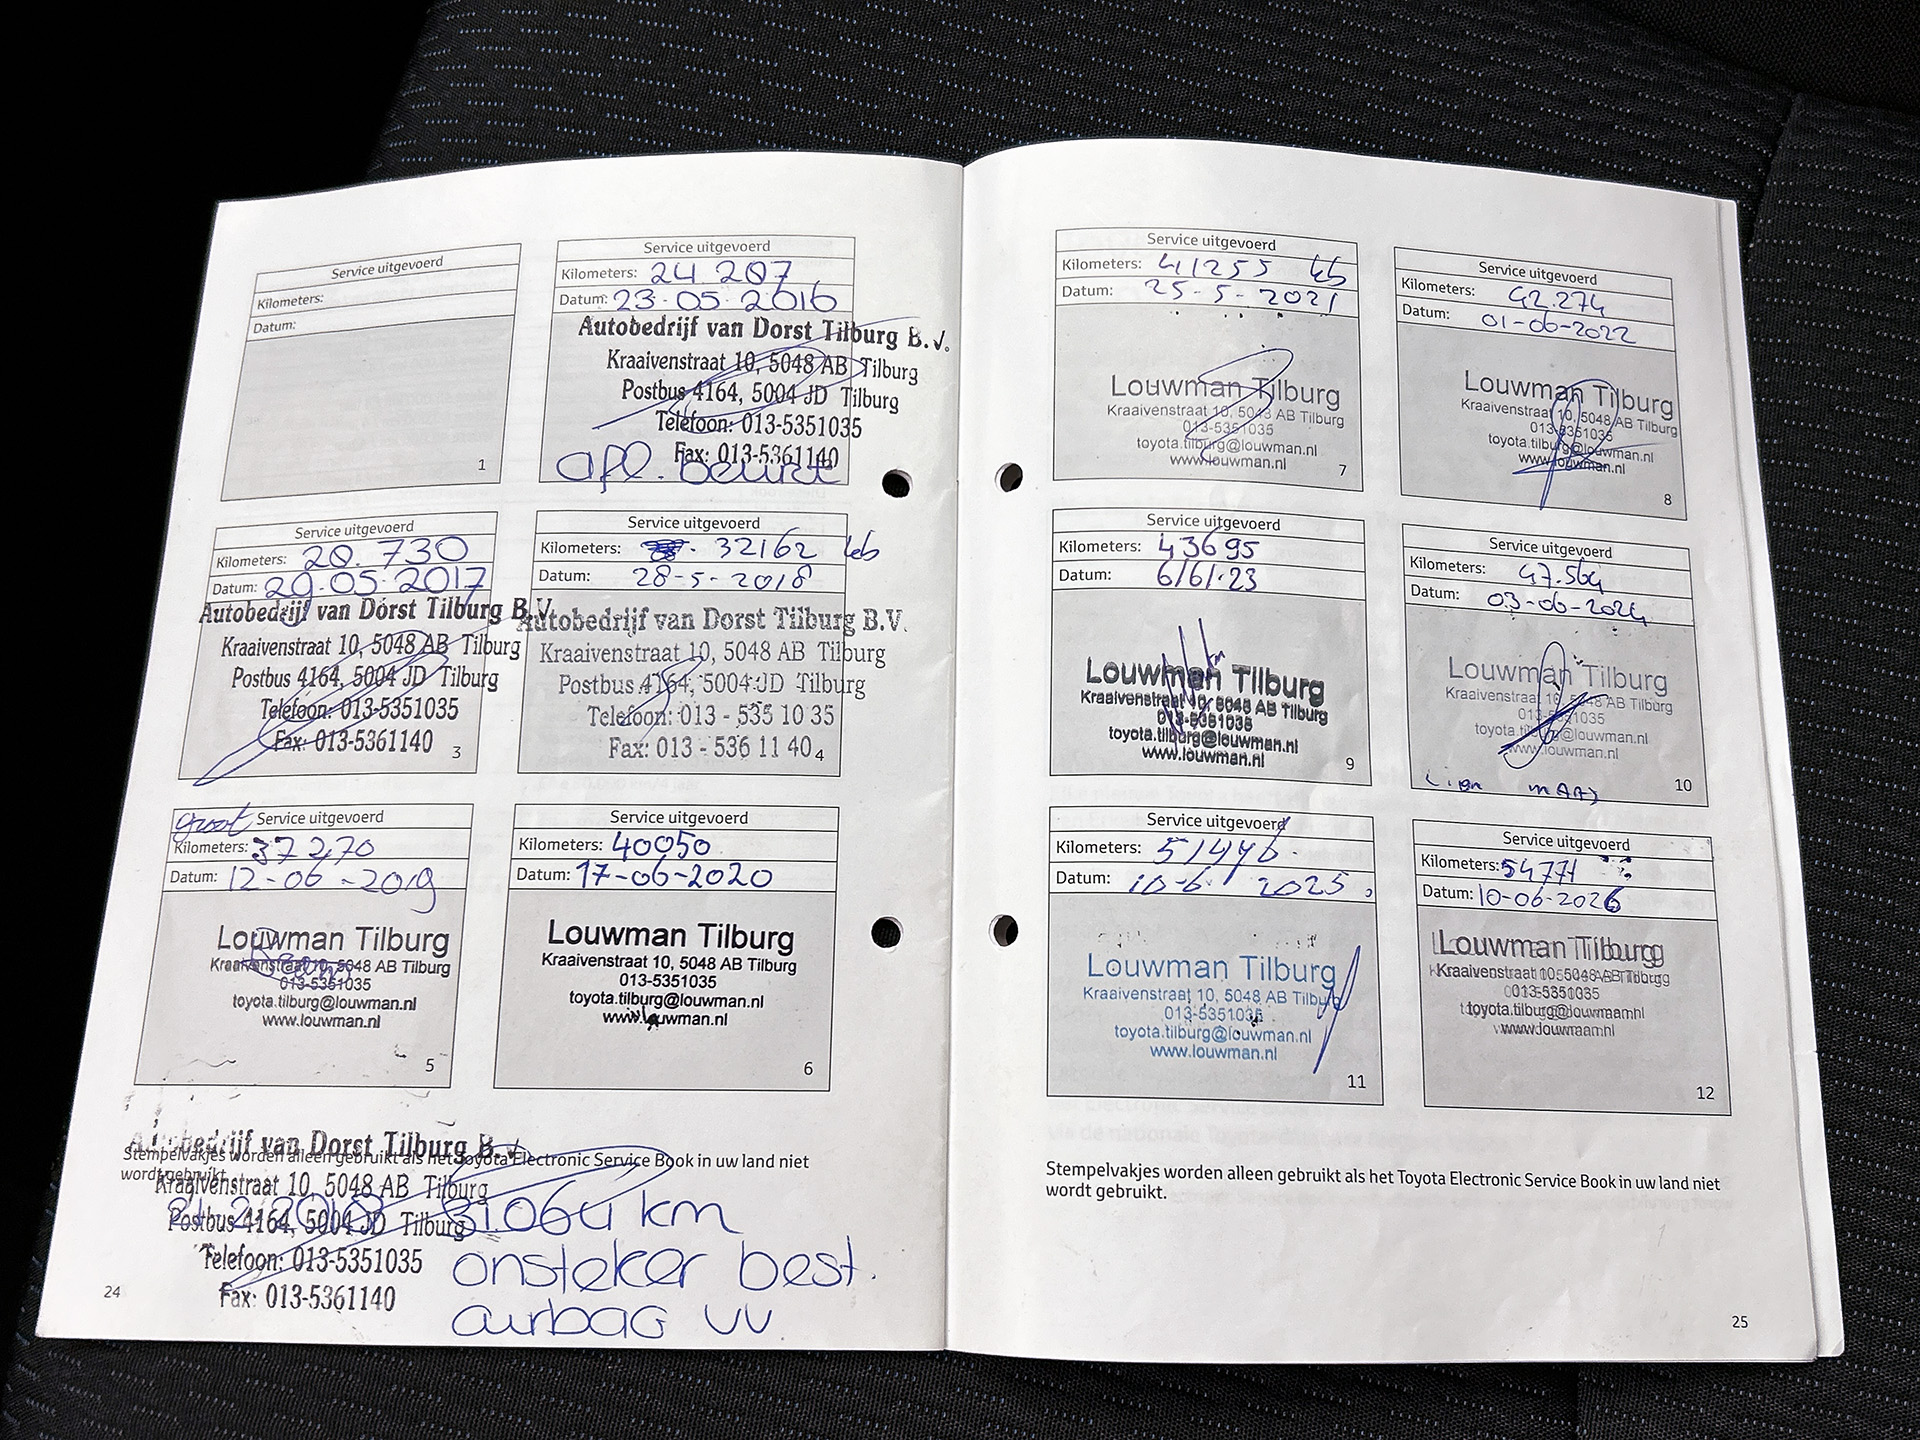 Service uitgevoerd
Kilometers:
Datum:
1
Service uitgevoerd
Kilometers: 24 207
Datum: 23-05-2016
Autobedrijf van Dorst Tilburg B.V.
Kraaivenstraat 10, 5048 AB Tilburg
Postbus 4164, 5004 JD Tilburg
Telefoon: 013-5351035
Fax: 013-5361140
afl. beurt
Service uitgevoerd
Kilometers: 28.730
Datum: 29-05-2017
Autobedrijf van Dorst Tilburg B.V.
Kraaivenstraat 10, 5048 AB Tilburg
Postbus 4164, 5004 JD Tilburg
Telefoon: 013-5351035
Fax: 013-5361140
3
Service uitgevoerd
Kilometers: 32162
Datum: 28-5-2018
Autobedrijf van Dorst Tilburg B.V.
Kraaivenstraat 10, 5048 AB Tilburg
Postbus 4164, 5004 JD Tilburg
Telefoon: 013 - 535 10 35
Fax: 013 - 536 11 40
4
groot
Service uitgevoerd
Kilometers: 37270
Datum: 12-06-2019
Louwman Tilburg
Kraaivenstraat 10, 5048 AB Tilburg
013-5351035
toyota.tilburg@louwman.nl
www.louwman.nl
5
Service uitgevoerd
Kilometers: 40050
Datum: 17-06-2020
Louwman Tilburg
Kraaivenstraat 10, 5048 AB Tilburg
013-5351035
toyota.tilburg@louwman.nl
www.louwman.nl
6
Autobedrijf van Dorst Tilburg B.V.
Stempelvakjes worden alleen gebruikt als het Toyota Electronic Service Book in uw land niet
wordt gebruikt.
Kraaivenstraat 10, 5048 AB Tilburg
Postbus 4164, 5004 JD Tilburg
Telefoon: 013-5351035
Fax: 013-5361140
31.064 km
onsteker best.
airbag vv
24
Service uitgevoerd
Kilometers: 41255
Datum: 25-5-2021
Louwman Tilburg
Kraaivenstraat 10, 5048 AB Tilburg
013-5351035
toyota.tilburg@louwman.nl
www.louwman.nl
7
Service uitgevoerd
Kilometers: 42.274
Datum: 01-06-2022
Louwman Tilburg
Kraaivenstraat 10, 5048 AB Tilburg
013-5351035
toyota.tilburg@louwman.nl
www.louwman.nl
8
Service uitgevoerd
Kilometers: 43695
Datum: 6/6/23
Louwman Tilburg
Kraaivenstraat 10, 5048 AB Tilburg
013-5351035
toyota.tilburg@louwman.nl
www.louwman.nl
9
Service uitgevoerd
Kilometers: 47.564
Datum: 03-06-2024
Louwman Tilburg
Kraaivenstraat 10, 5048 AB Tilburg
013-5351035
toyota.tilburg@louwman.nl
www.louwman.nl
10
Service uitgevoerd
Kilometers: 51446
Datum: 10-6-2025
Louwman Tilburg
Kraaivenstraat 10, 5048 AB Tilburg
013-5351035
toyota.tilburg@louwman.nl
www.louwman.nl
11
Service uitgevoerd
Kilometers: 54771
Datum: 10-06-2026
Louwman Tilburg
Kraaivenstraat 10, 5048 AB Tilburg
013-5351035
toyota.tilburg@louwman.nl
www.louwman.nl
12
Stempelvakjes worden alleen gebruikt als het Toyota Electronic Service Book in uw land niet
wordt gebruikt.
25